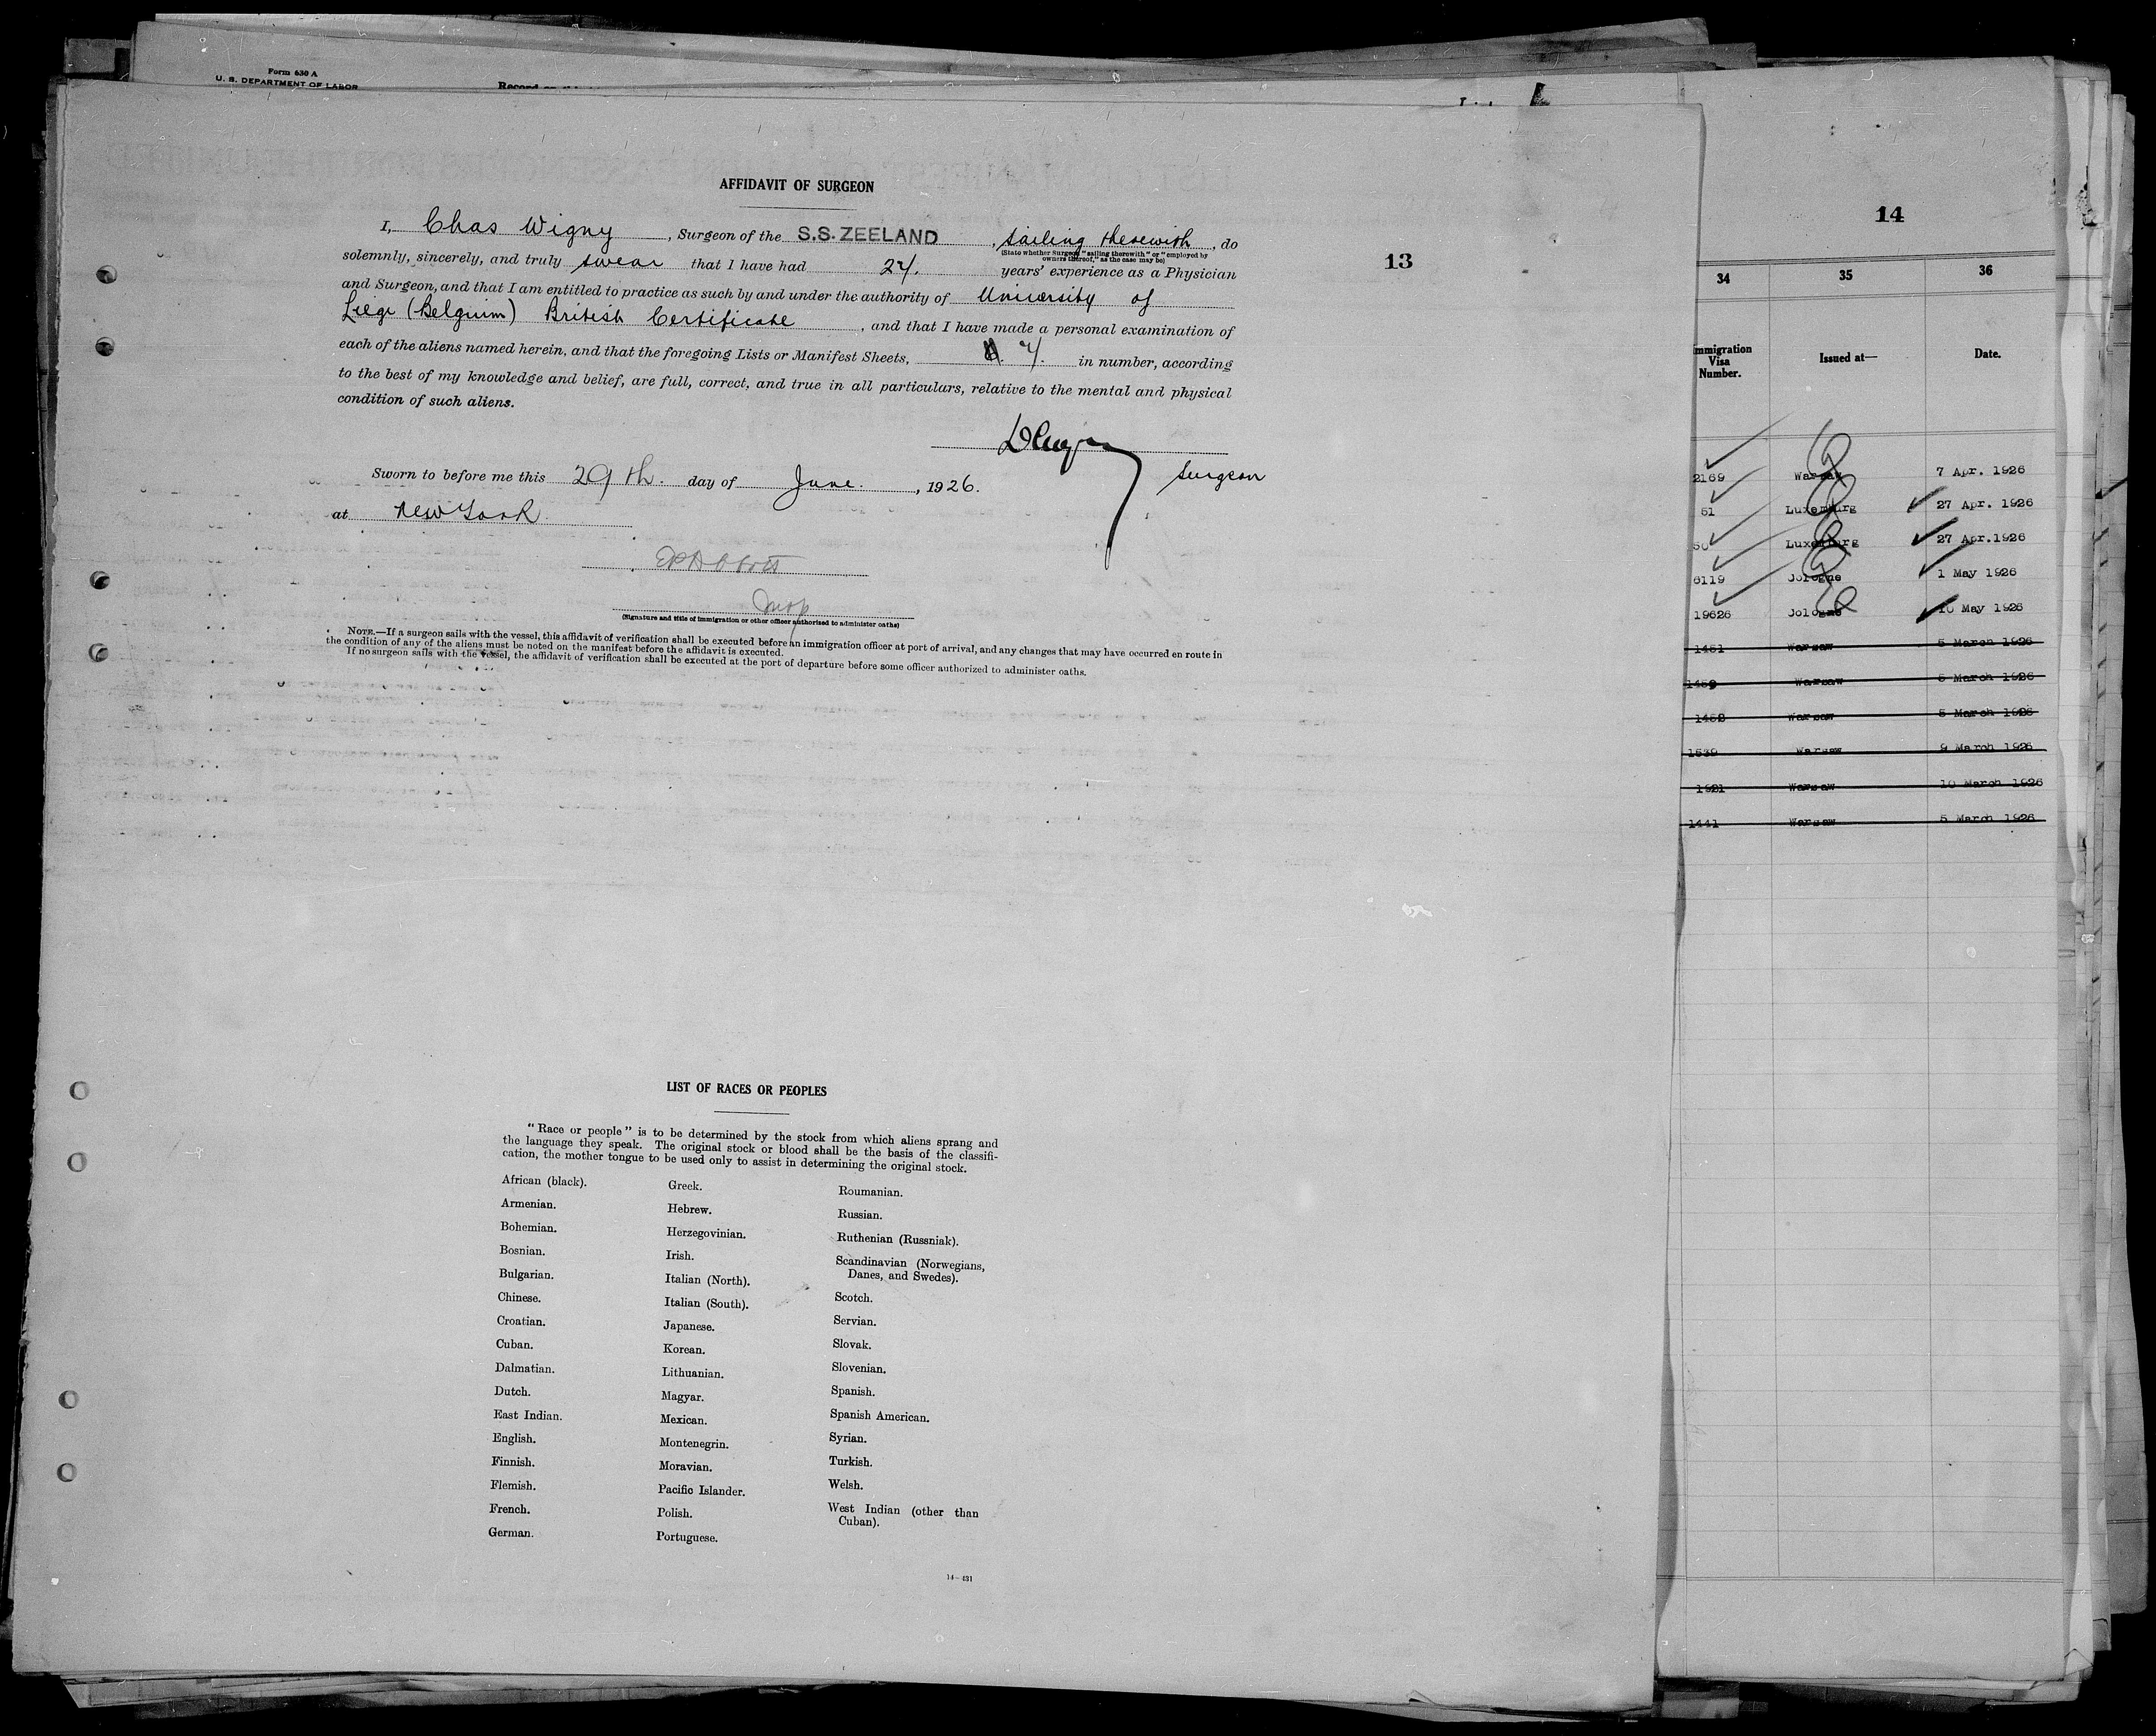 Form 630 A
U. S. DEPARTMENT OF LABOR
AFFIDAVIT OF SURGEON
I, Chas Wigny, Surgeon of the S.S. ZEELAND, sailing therewith, do
(State whether Surgeon "sailing therewith" or "employed by
owners thereof," as the case may be)
solemnly, sincerely, and truly swear that I have had 24. years' experience as a Physician
and Surgeon, and that I am entitled to practice as such by and under the authority of University of
Liège (Belgium) British Certificate, and that I have made a personal examination of
each of the aliens named herein, and that the foregoing Lists or Manifest Sheets, 4. in number, according
to the best of my knowledge and belief, are full, correct, and true in all particulars, relative to the mental and physical
condition of such aliens.
Surgeon
Sworn to before me this 29th. day of June., 1926.
at New York
(Signature and title of immigration or other officer authorized to administer oaths)
NOTE.—If a surgeon sails with the vessel, this affidavit of verification shall be executed before an immigration officer at port of arrival, and any changes that may have occurred en route in
the condition of any of the aliens must be noted on the manifest before the affidavit is executed.
If no surgeon sails with the vessel, the affidavit of verification shall be executed at the port of departure before some officer authorized to administer oaths.
13
LIST OF RACES OR PEOPLES
"Race or people" is to be determined by the stock from which aliens sprang and
the language they speak. The original stock or blood shall be the basis of the classifi-
cation, the mother tongue to be used only to assist in determining the original stock.
African (black).
Armenian.
Bohemian.
Bosnian.
Bulgarian.
Chinese.
Croatian.
Cuban.
Dalmatian.
Dutch.
East Indian.
English.
Finnish.
Flemish.
French.
German.
Greek.
Hebrew.
Herzegovinian.
Irish.
Italian (North).
Italian (South).
Japanese.
Korean.
Lithuanian.
Magyar.
Mexican.
Montenegrin.
Moravian.
Pacific Islander.
Polish.
Portuguese.
Roumanian.
Russian.
Ruthenian (Russniak).
Scandinavian (Norwegians,
Danes, and Swedes).
Scotch.
Servian.
Slovak.
Slovenian.
Spanish.
Spanish American.
Syrian.
Turkish.
Welsh.
West Indian (other than
Cuban).
14—431
14
34 35 36
Immigration
Visa
Number.
Issued at—
Date.
2169 Warsaw 7 Apr. 1926
51 Luxemburg 27 Apr. 1926
50 Luxemburg 27 Apr.1926
6119 Cologne 1 May 1926
19626 Cologne 10 May 1926
1451 Warsaw 5 March 1926
1459 Warsaw 5 March 1926
1452 Warsaw 5 March 1926
1539 Warsaw 9 March 1926
1921 Warsaw 10 March 1926
1441 Warsaw 5 March 1926